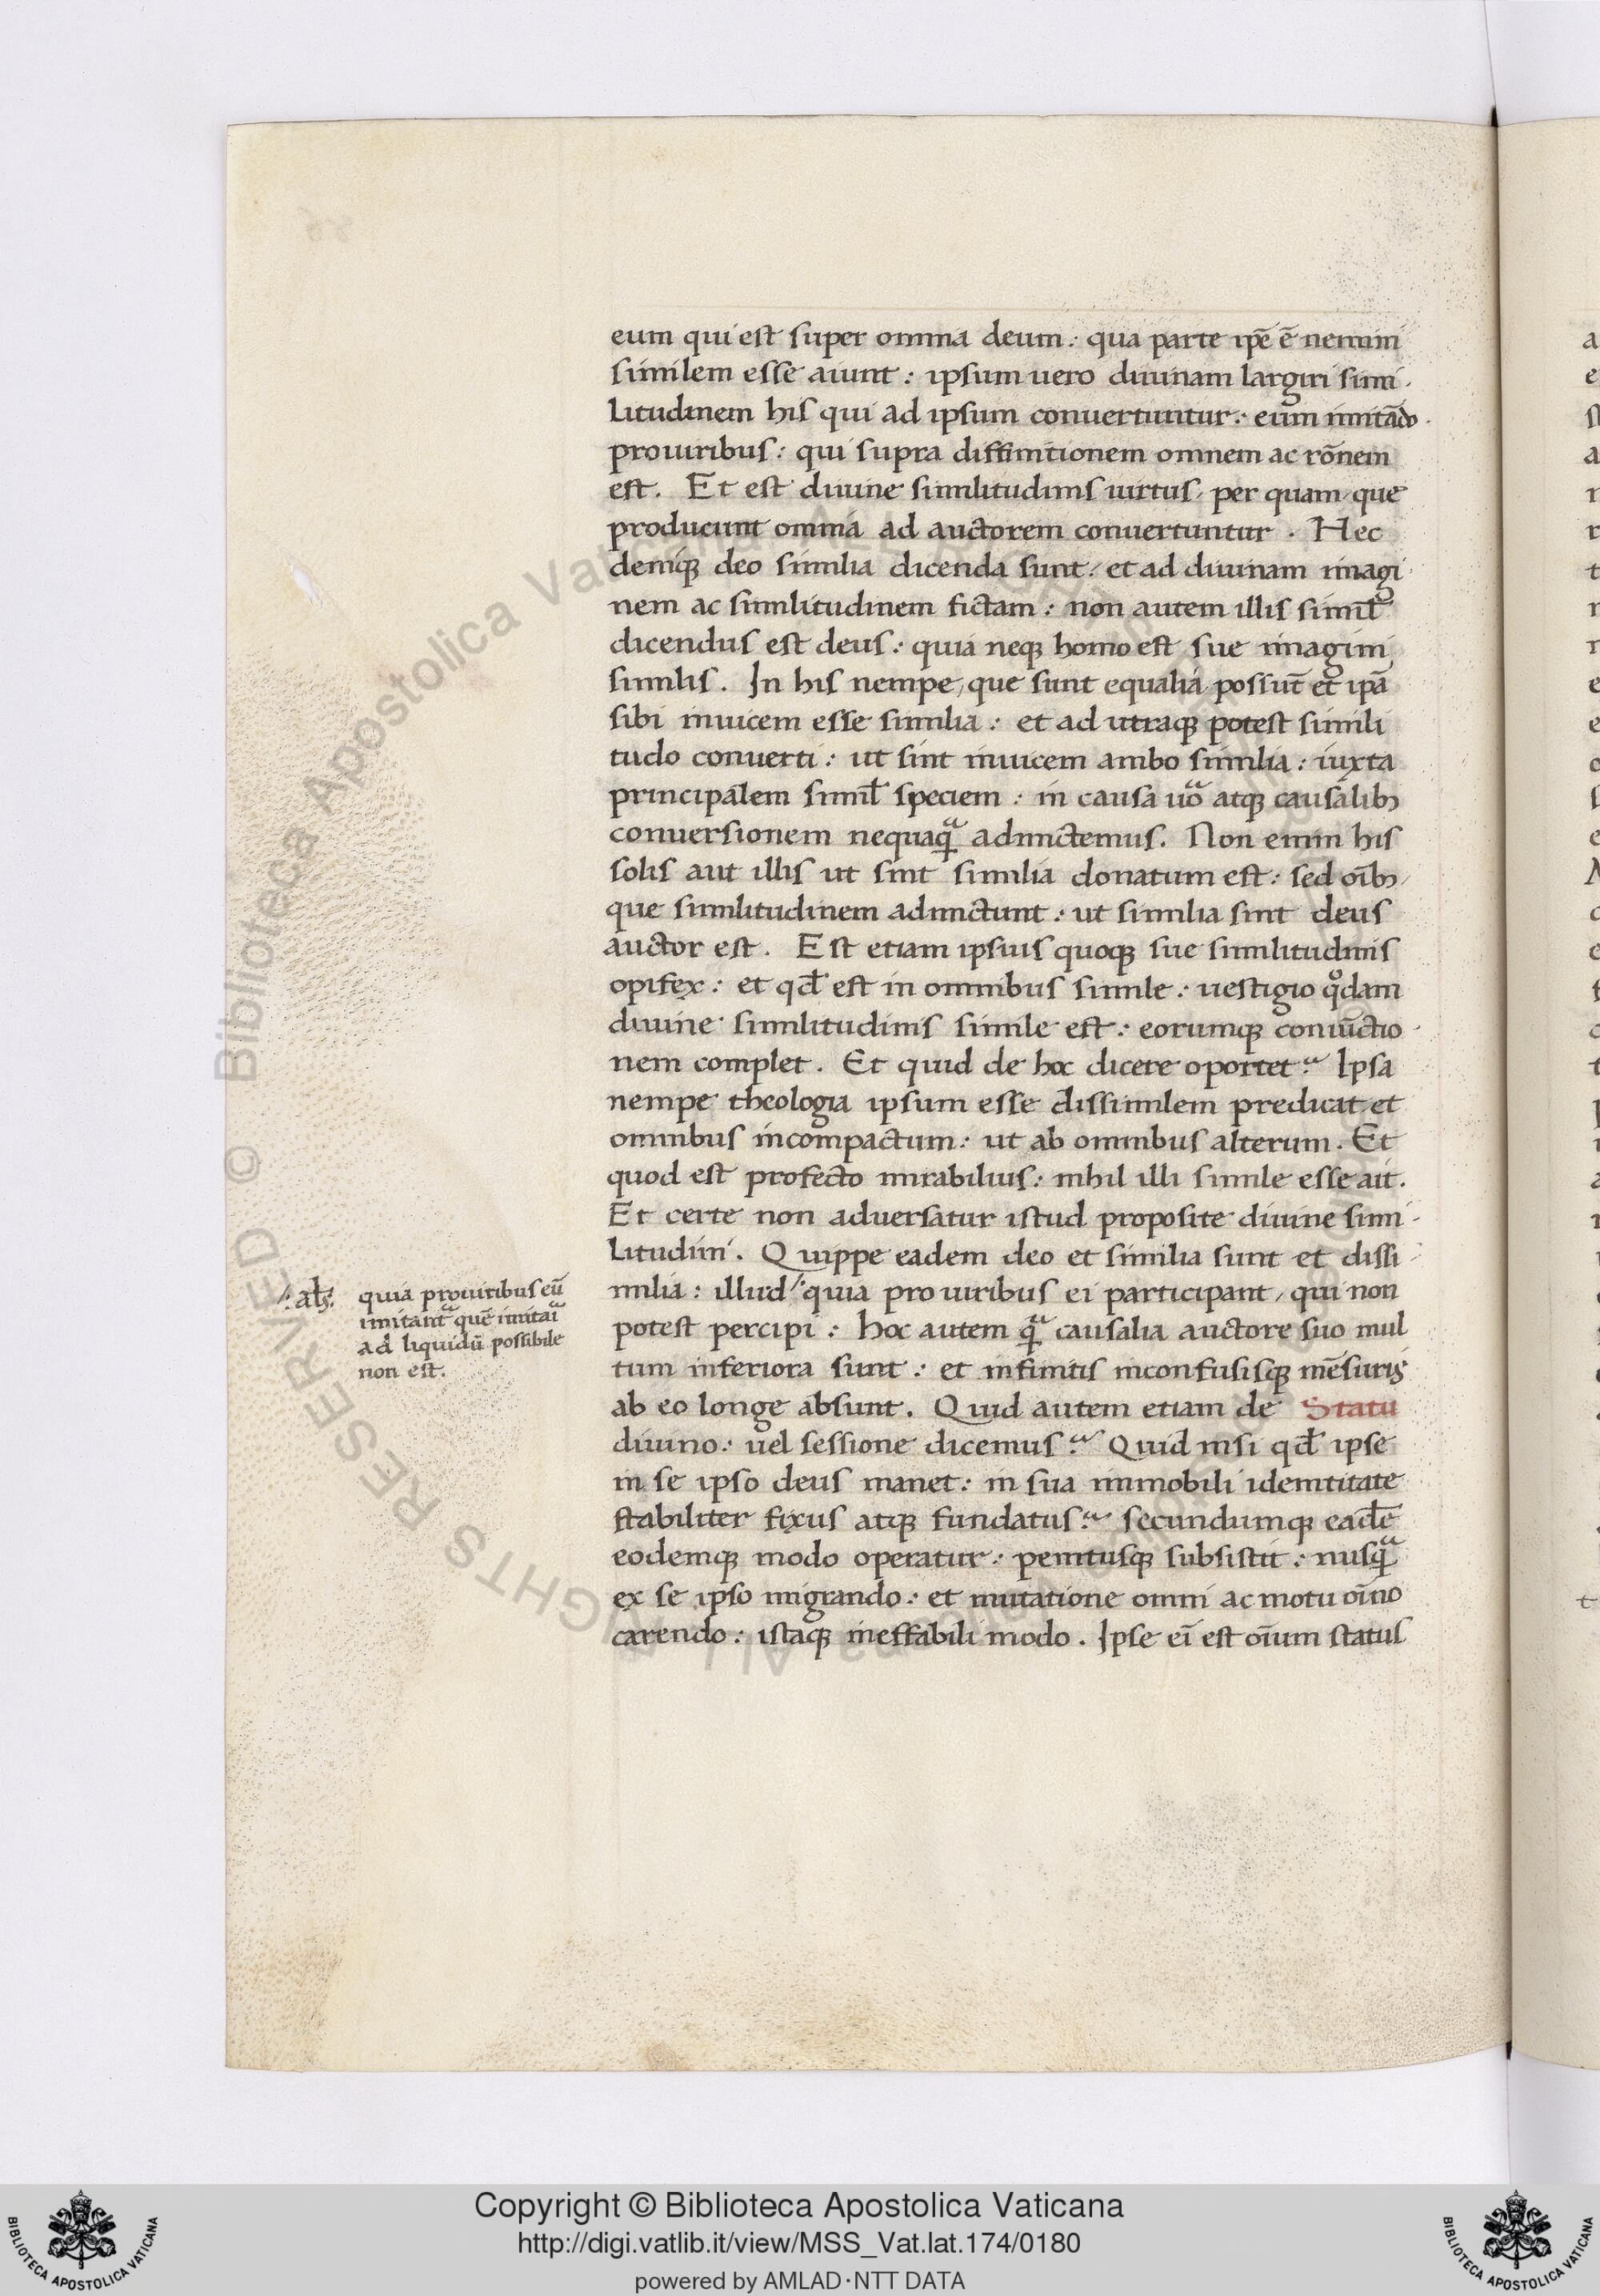 eum qui est super omnia deum: qua parte ip̄e ē nemini
similem esse aiunt: ipsum uero diuinam largiri simi-
litudinem his qui ad ipsum conuertuntur: eum imitādo
prouiribus: qui supra diffinitionem omnem ac rōnem
est. Et est diuine similitudinis uirtus, per quam, que
producunt omnia ad auctorem conuertuntur. Hec
deniqꝫ deo similia dicenda sunt, et ad diuinam imagi
nem ac similitudinem fictam: non autem illis simil̄
dicendus est deus: quia neqꝫ homo est sue imagini
similis. In his nempe, que sunt equalia, possūt et ip̄a
sibi inuicem esse similia: et ad utraqꝫ potest simili
tudo conuerti: ut sint inuicem ambo similia: iuxta
principalem simil̄ speciem: in causa uͣo atqꝫ causalibꝫ
conuersionem nequaqͣꝫ admictemus. Non enim his
solis aut illis ut sint similia donatum est: sed oībꝫ,
que similitudinem admictunt: ut similia sint deus
auctor est. Est etiam ipsius quoqꝫ sue similitudinis
opifex: et qd̄ est in omnibus simile: uestigio qͦdam
diuine similitudinis simile est: eorumqꝫ coniūctio-
nem complet. Et quid de hoc dicere oportet? Ipsa
nempe theologia ipsum esse dissimilem predicat, et
omnibus incompactum: ut ab omnibus alterum. Et
quod est profecto mirabilius: nihil illi simile esse ait.
Et certe non aduersatur istud proposite diuine simi-
litudini. Quippe eadem deo et similia sunt et dissi-
milia: illud quia pro uiribus ei participant, qui non
potest percipi: hoc autem qͣꝫ causalia auctore suo mul
tum inferiora sunt: et infinitis inconfusisqꝫ mēsuris
ab eo longe absunt. Quid autem etiam de Statu
diuino: uel sessione dicemus? Quid nisi qd̄ ipse
in se ipso deus manet: in sua immobili idemtitate
stabiliter fixus atqꝫ fundatus? secundumqꝫ eadē
eodemqꝫ modo operatur: penitusqꝫ subsistit: nusqͣꝫ
ex se ipso migrando: et mutatione omni ac motu oīno
carendo: istaqꝫ ineffabili modo. Ipse eī est oīum status
quia prouiribus eū
imitantͣ quē imitaiͣ
ad liquidū possibile
non est.
© Biblioteca Apostolica Vaticana
ALL RIGHTS RESERVED
Copyright © Biblioteca Apostolica Vaticana
http://digi.vatlib.it/view/MSS_Vat.lat.174/0180
powered by AMLAD·NTT DATA
BIBLIOTECA APOSTOLICA VATICANA
BIBLIOTECA APOSTOLICA VATICANA